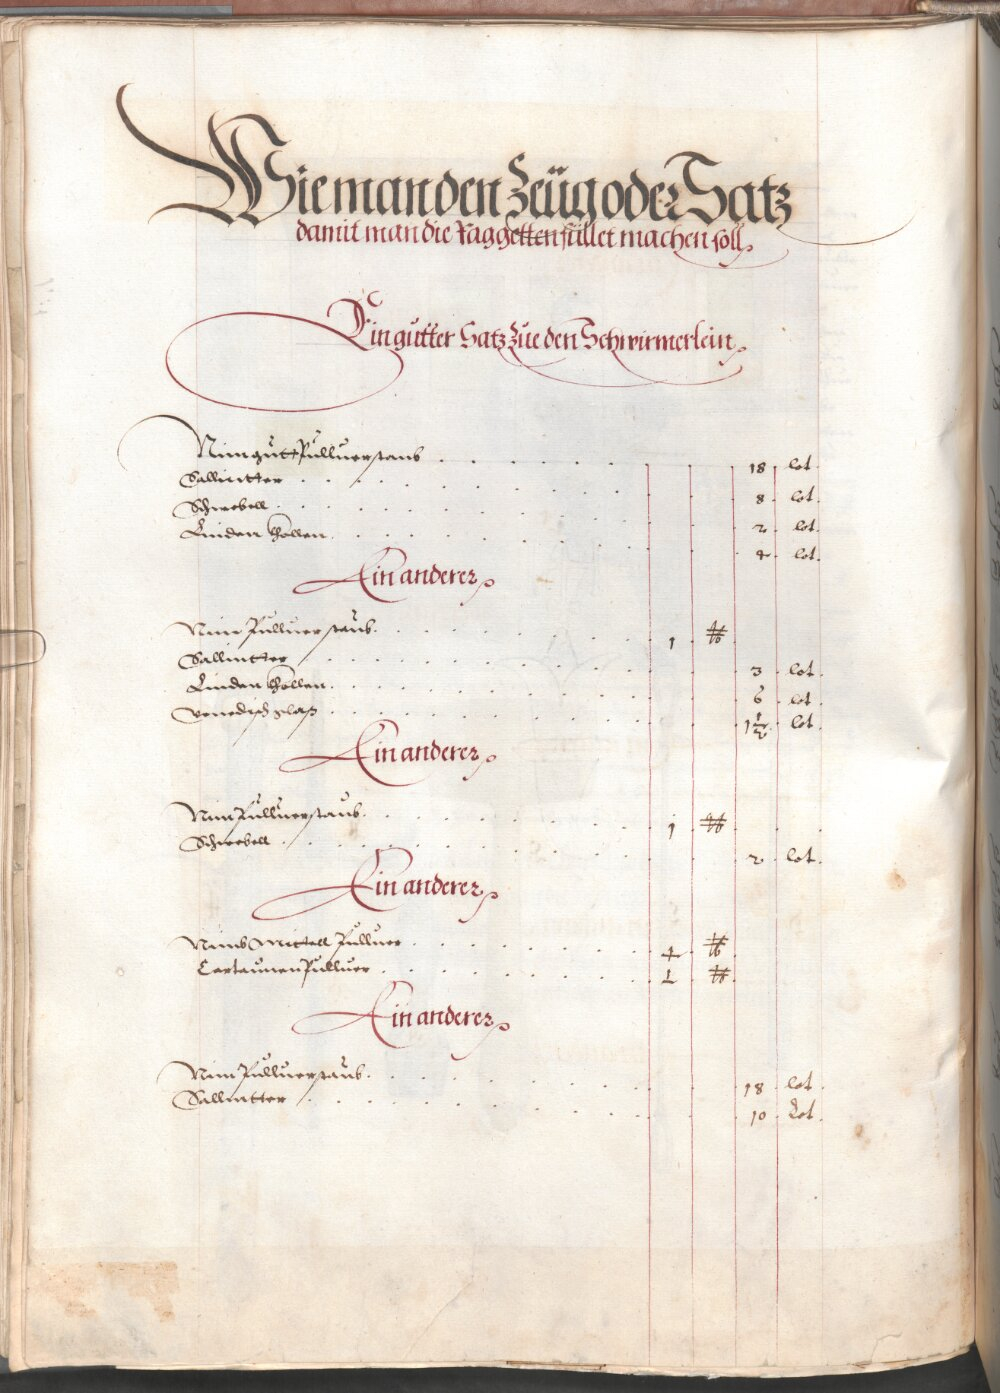 Wie man den Zeüg oder Satz
damit man die Raggetten füllet machen soll
Ein gutter Satz Zue den Schwirmerlein
Nim gütt Pulluerstaub 18 lot
Sallintter 8 lot
Schwebell 2 lot
Linden Khollen 4 lot
Ein anderer
Nim Pulluerstaub 1 ℔
Sallintter 3 lot
Linden Khollen 6 lot
Venedisch glaß 1½ lot
Ein anderer
Nim Pulluerstaub 1 ℔
Schwebell 2 lot
Ein anderer
Nimb Mittell Pulluer 4 ℔
Cartaunen Pulluer ℔
Ein anderer
Nim Pulluerstaub 18 lot
Sallintter 10 Lot